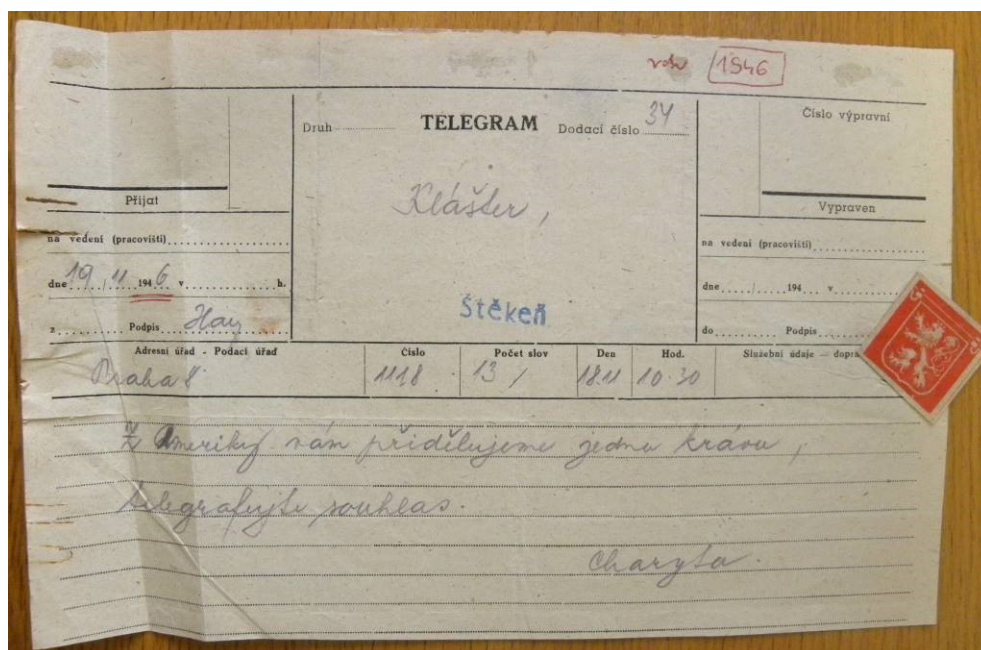 rok 1946
Druh TELEGRAM Dodací číslo 34
Číslo výpravní
Klášter,
Přijat
Vypraven
na vedení (pracovišti)
na vedení (pracovišti)
dne 19 / 11 1946 v h.
dne / 194 v
Štěkeň
z Podpis
do Podpis
Adresní úřad - Podací úřad Číslo Počet slov Den Hod. Služební údaje — dopra
Praha 8 1118 13 / 18.11 10.30
Z Ameriky vám přidělujeme jednu krávu,
telegrafujte souhlas.
Charyta.